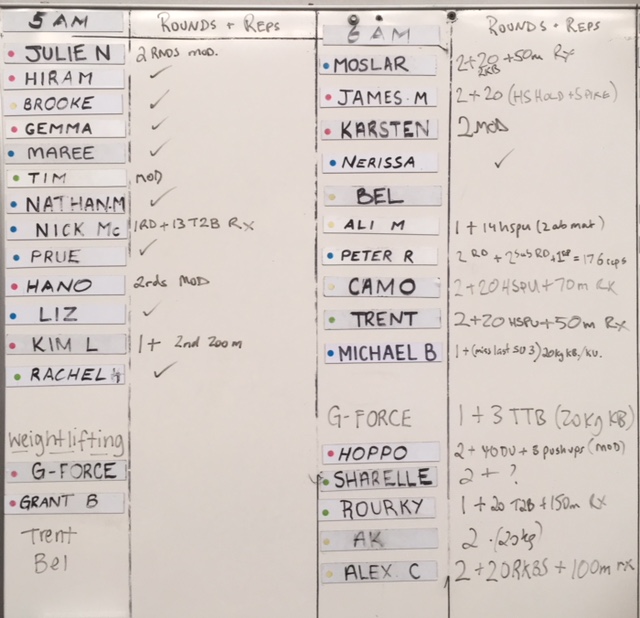 5 AM ROUNDS + REPS
JULIE N 2 RNDS MOD.
HIRAM ✓
BROOKE ✓
GEMMA ✓
MAREE ✓
TIM MOD
NATHAN.M ✓
NICK Mc 1RD + 13 T2B RX
PRUE ✓
HANO 2rds MOD
LIZ ✓
KIM L 1 + 2nd 200m
RACHEL ✓
weightlifting
G-FORCE
GRANT B
Trent
Bel
6 AM ROUNDS + REPS
MOSLAR 2+20 +50m Rx
2KB
JAMES M 2 + 20 (HS HOLD + SPIKE)
KARSTEN 2 MOD
NERISSA ✓
BEL
ALI M 1 + 14 hspu (2 ab mat)
PETER R 2 RD + = 176 reps
CAMO 2+20 HSPU + 70m RX
TRENT 2+20 HSPU + 50m Rx
MICHAEL B 1 + (miss last 20kg KB/
G-FORCE 1 + 3 TTB (20Kg KB)
HOPPO 2 + 40DU + 8 pushups (MOD)
SHARELLE 2 + ?
ROURKY 1 + 20 T2B + 150m RX
AK 2 (20kg)
ALEX C 2 + 20RKBS + 100m rx